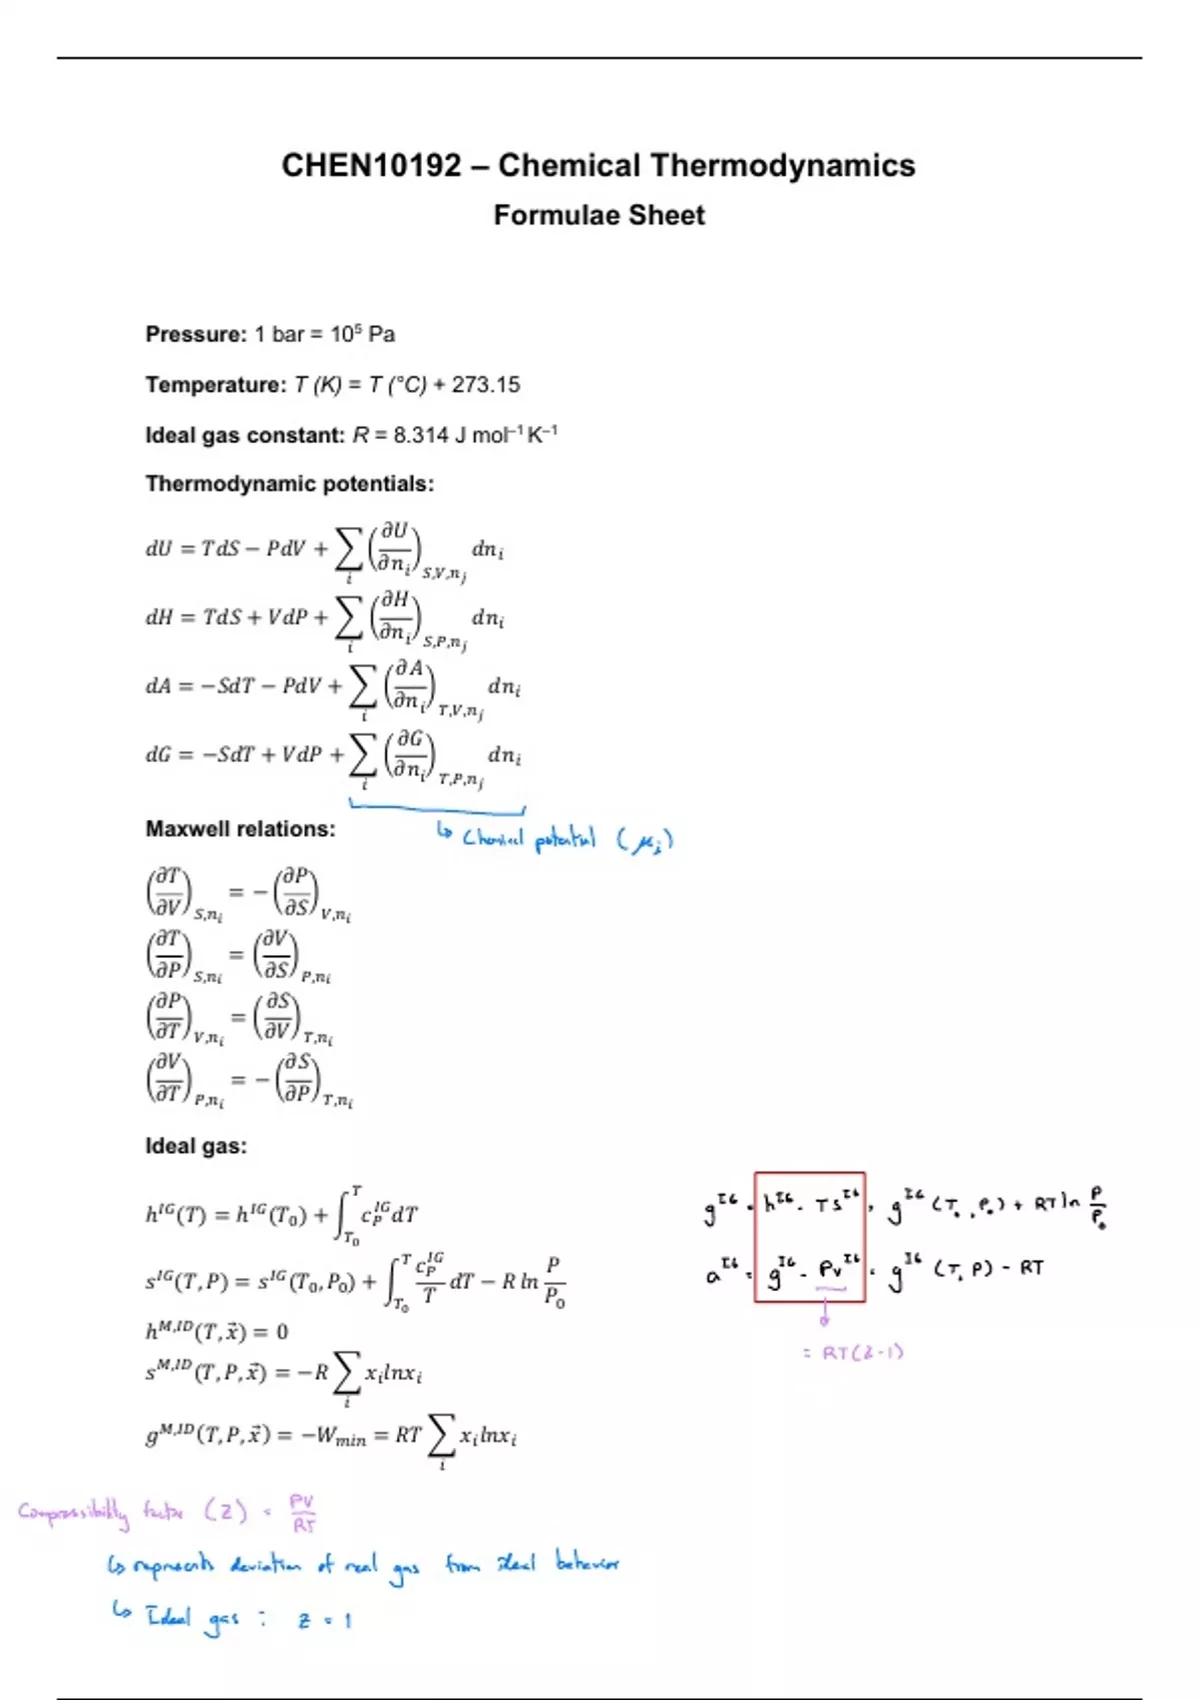 CHEN10192 – Chemical Thermodynamics
Formulae Sheet
Pressure: 1 bar = 10⁵ Pa
Temperature: T (K) = T (°C) + 273.15
Ideal gas constant: R = 8.314 J mol⁻¹ K⁻¹
Thermodynamic potentials:
dU = TdS − PdV + ∑_i (∂U/∂n_i)_{S,V,n_j} dn_i
dH = TdS + VdP + ∑_i (∂H/∂n_i)_{S,P,n_j} dn_i
dA = −SdT − PdV + ∑_i (∂A/∂n_i)_{T,V,n_j} dn_i
dG = −SdT + VdP + ∑_i (∂G/∂n_i)_{T,P,n_j} dn_i
↳ Chemical potential (μ_i)
Maxwell relations:
(∂T/∂V)_{S,n_i} = −(∂P/∂S)_{V,n_i}
(∂T/∂P)_{S,n_i} = (∂V/∂S)_{P,n_i}
(∂P/∂T)_{V,n_i} = (∂S/∂V)_{T,n_i}
(∂V/∂T)_{P,n_i} = −(∂S/∂P)_{T,n_i}
Ideal gas:
h^{IG}(T) = h^{IG}(T_0) + ∫_{T_0}^{T} c_P^{IG} dT
g^{IG} = h^{IG} - Ts^{IG} = g^{IG} (T_0, P_0) + RT ln P/P_0
s^{IG}(T, P) = s^{IG}(T_0, P_0) + ∫_{T_0}^{T} c_P^{IG}/T dT − R ln P/P_0
a^{IG} = g^{IG} - Pv^{IG} = g^{IG} (T, P) - RT
h^{M,ID}(T, x⃗) = 0
= RT(Z-1)
s^{M,ID}(T, P, x⃗) = −R ∑_i x_i lnx_i
g^{M,ID}(T, P, x⃗) = −W_{min} = RT ∑_i x_i lnx_i
Compressibility factor (Z) = PV/RT
↳ represents deviation of real gas from ideal behavior
↳ Ideal gas : Z = 1